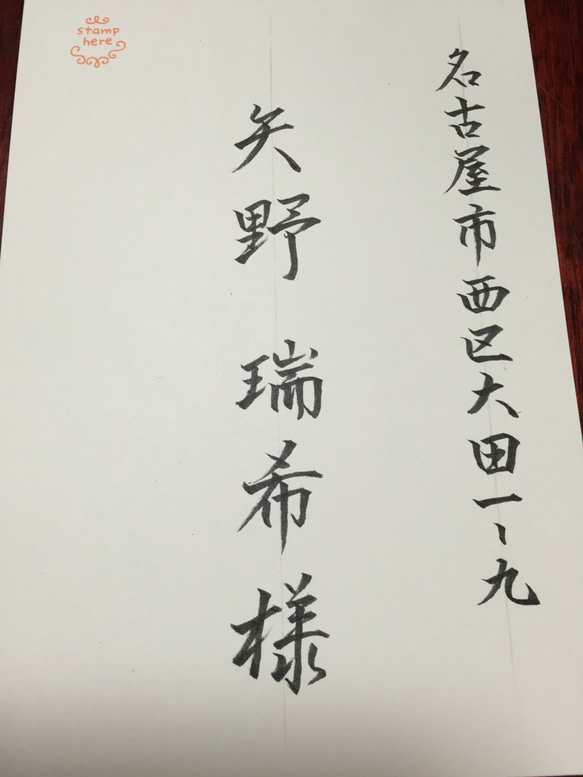 名古屋市西区大田一-九
矢野 瑞希様
stamp
here